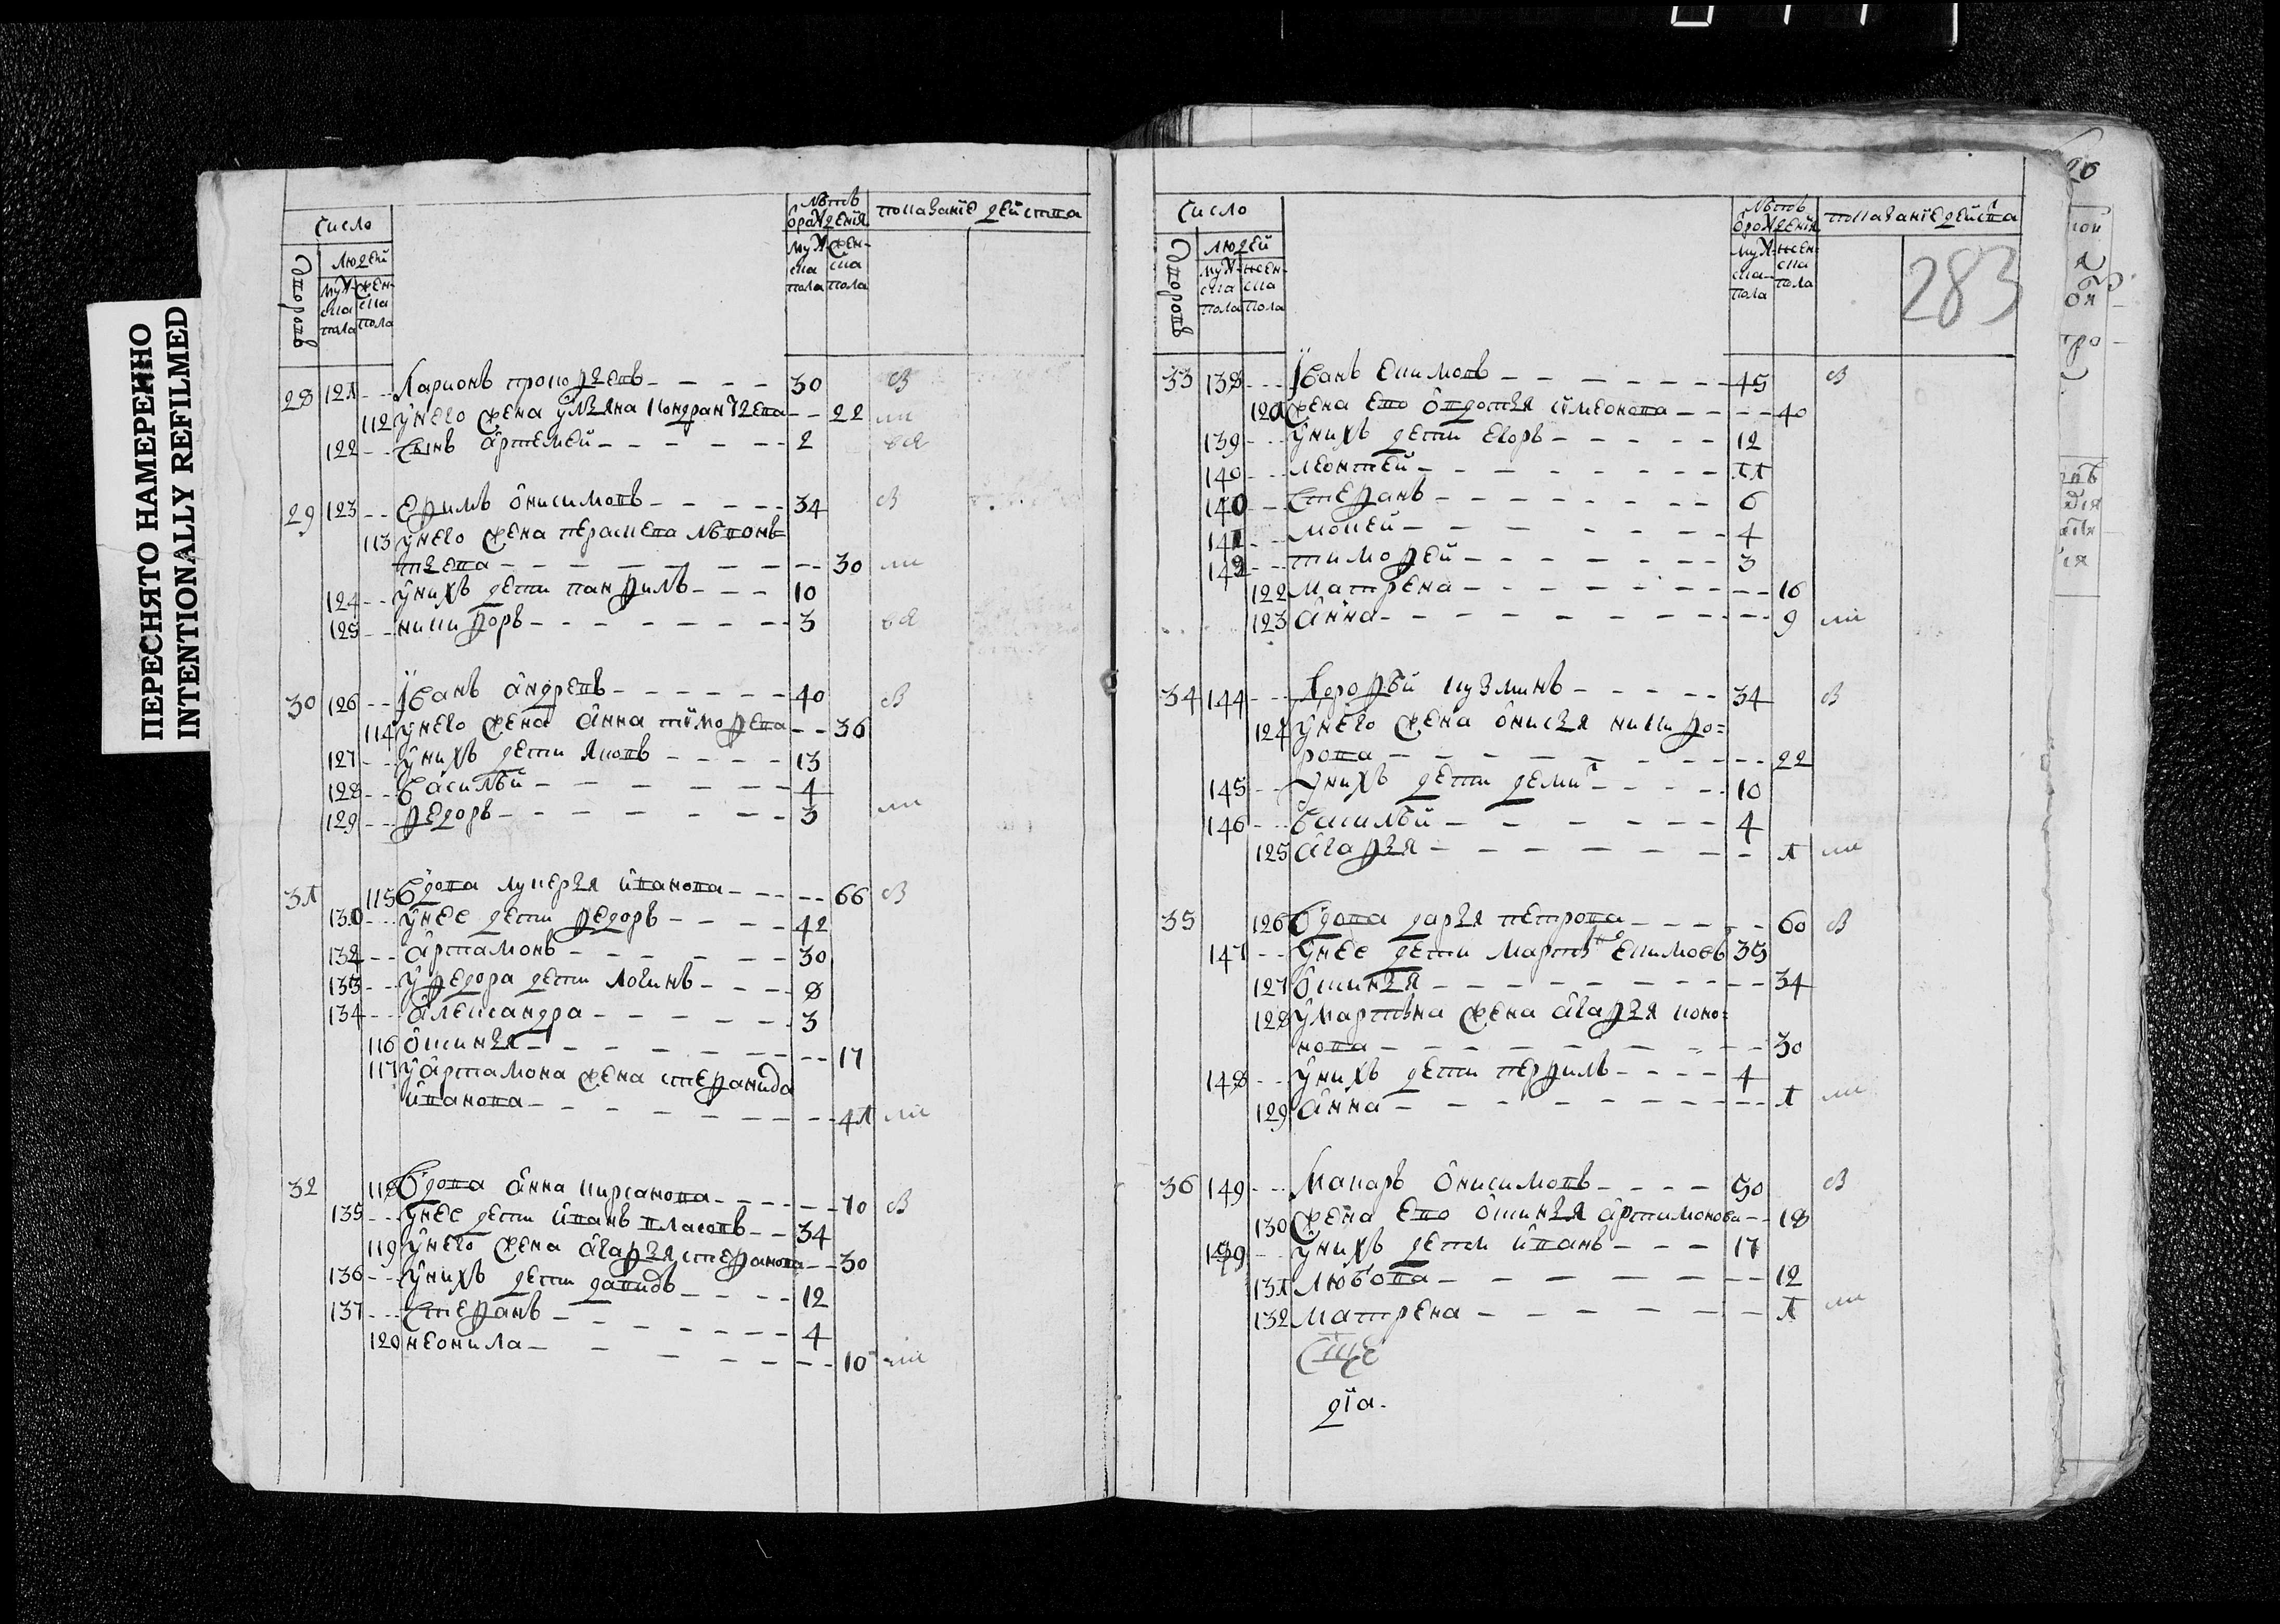 ПЕРЕСНЯТО НАМЕРЕННО
INTENTIONALLY REFILMED
Число
лѣтъ
ѿ рожденїя
показанїе действа
дворовъ
людей
муж-
ска
пола
жен-
ска
пола
муж
ска
пола
жен-
ска
пола
28 121 Ларионъ прокофьевъ 30
112 у него жена ульяна кондратьева 22
122 сынъ артемей 2
29 123 ефимъ онисимовъ 34
113 у него жена
30
124 у нихъ дети панфилъ 10
125 никифоръ 3
30 126 Иванъ андревъ 40
114 у него жена анна тимофева 36
127 у нихъ дети яковъ 13
128 василѣй 4
129 федоръ 3
31 115 вдова лукерья иванова 66
130 у нее дети федоръ 42
132 артамонъ 30
133 у федора дети логинъ 8
134 александра 3
116 ѳминья 17
117 у артамона жена стефанида
иванова 41
32 118 вдова анна кирсанова 70
135 у нее дети иванъ власовъ 34
119 у него жена агафья стефанова 30
136 у нихъ дети давидъ 12
137 стефанъ 4
120 неонила 10
Число
лѣтъ
ѿ рожденїя
показанїе действа
283
дворовъ
людей
муж-
ска
пола
жен-
ска
пола
муж
ска-
пола
жен-
ска
пола
33 138 Иванъ екимовъ 45
121 жена ево овдотья симеонова 40
139 у нихъ дети егоръ 12
140 леонтей 11
140 стефанъ 6
141 мокей 4
142 тимофей 3
122 матрена 16
123 анна 9
34 144 дорофѣй кузминъ 34
124 у него жена онисья никифо=
рова 22
145 у нихъ дети деми 10
146 василѣй 4
125 агафья 1
35 126 вдова дарья петрова 60
147 у нее дети мартинъ екимовъ 35
127 ѳминья 34
128 у мартина жена агафья коно=
нова 30
148 у нихъ дети перфилъ 4
129 анна 1
36 149 Макаръ онисимовъ 50
130 жена ево артимонова 18
199 у нихъ дети иванъ 17
131 любова 12
132 матрена 1